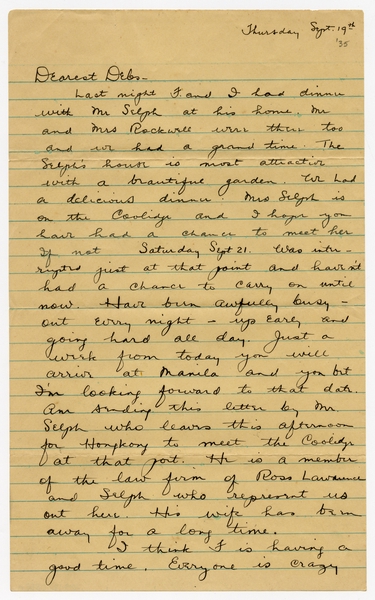 Thursday Sept. 19th
'35
Dearest Debs-
Last night F. and I had dinner
with Mr Selph at his home. Mr
and Mrs Rockwell were there too
and we had a grand time. The
Selph's house is most attractive
with a beautiful garden. We had
a delicious dinner. Mrs Selph is
on the Coolidge and I hope you
have had a chance to meet her
If not Saturday Sept 21. Was inter-
rupted just at that point and haven't
had a chance to carry on until
now. Have been awfully busy -
out every night - up early and
going hard all day. Just a
week from today you will
arrive at Manila and you bet
I'm looking forward to that date.
Am sending this letter by Mr.
Selph who leaves this afternoon
for Hongkong to meet the Coolidge
at that port. He is a member
of the law firm of Ross, Lawrence
and Selph who represent us
out here. His wife has been
away for a long time.
I think F is having a
good time. Everyone is crazy